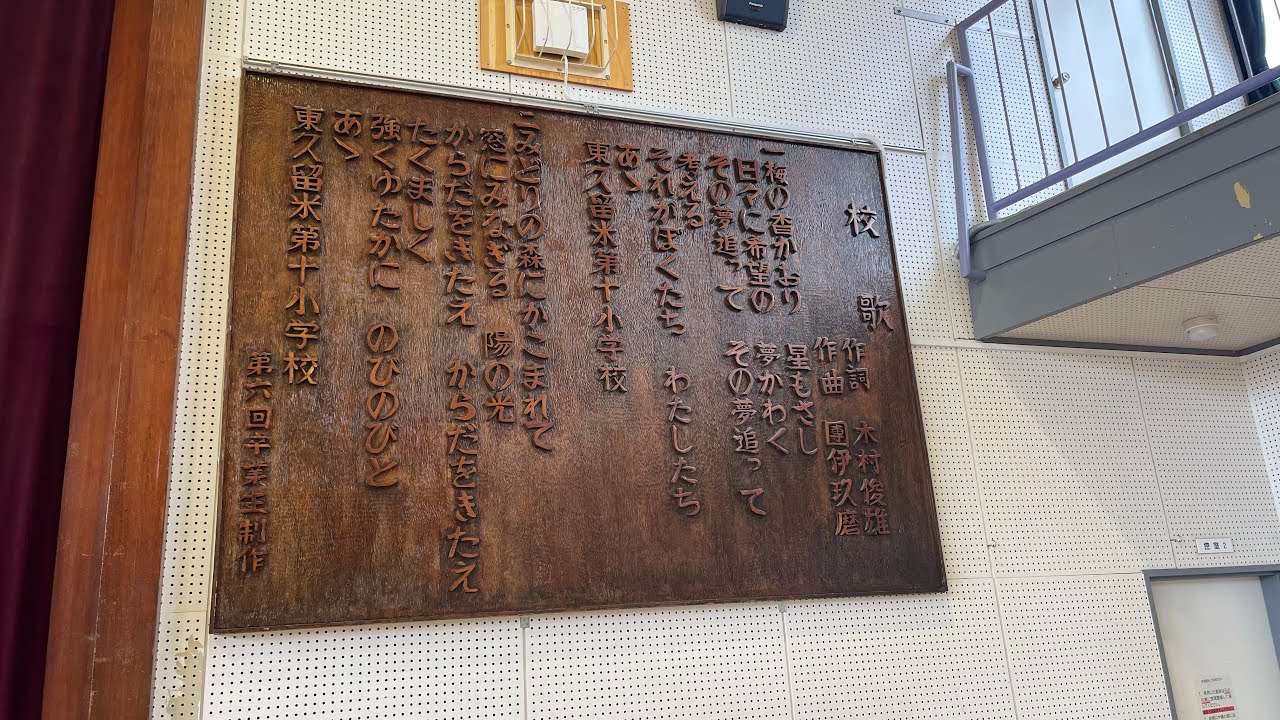 校歌
作詞 木村俊雄
作曲 團伊玖磨
一梅の香かおり 星もさし
日々に希望の 夢かわく
その夢追って その夢追って
考える
それがぼくたち わたしたち
あゝ
東久留米第十小学校
二みどりの森にかこまれて
窓にみなぎる 陽の光
からだをきたえ からだをきたえ
たくましく
強くゆたかに のびのびと
あゝ
東久留米第十小学校
第六回卒業生制作